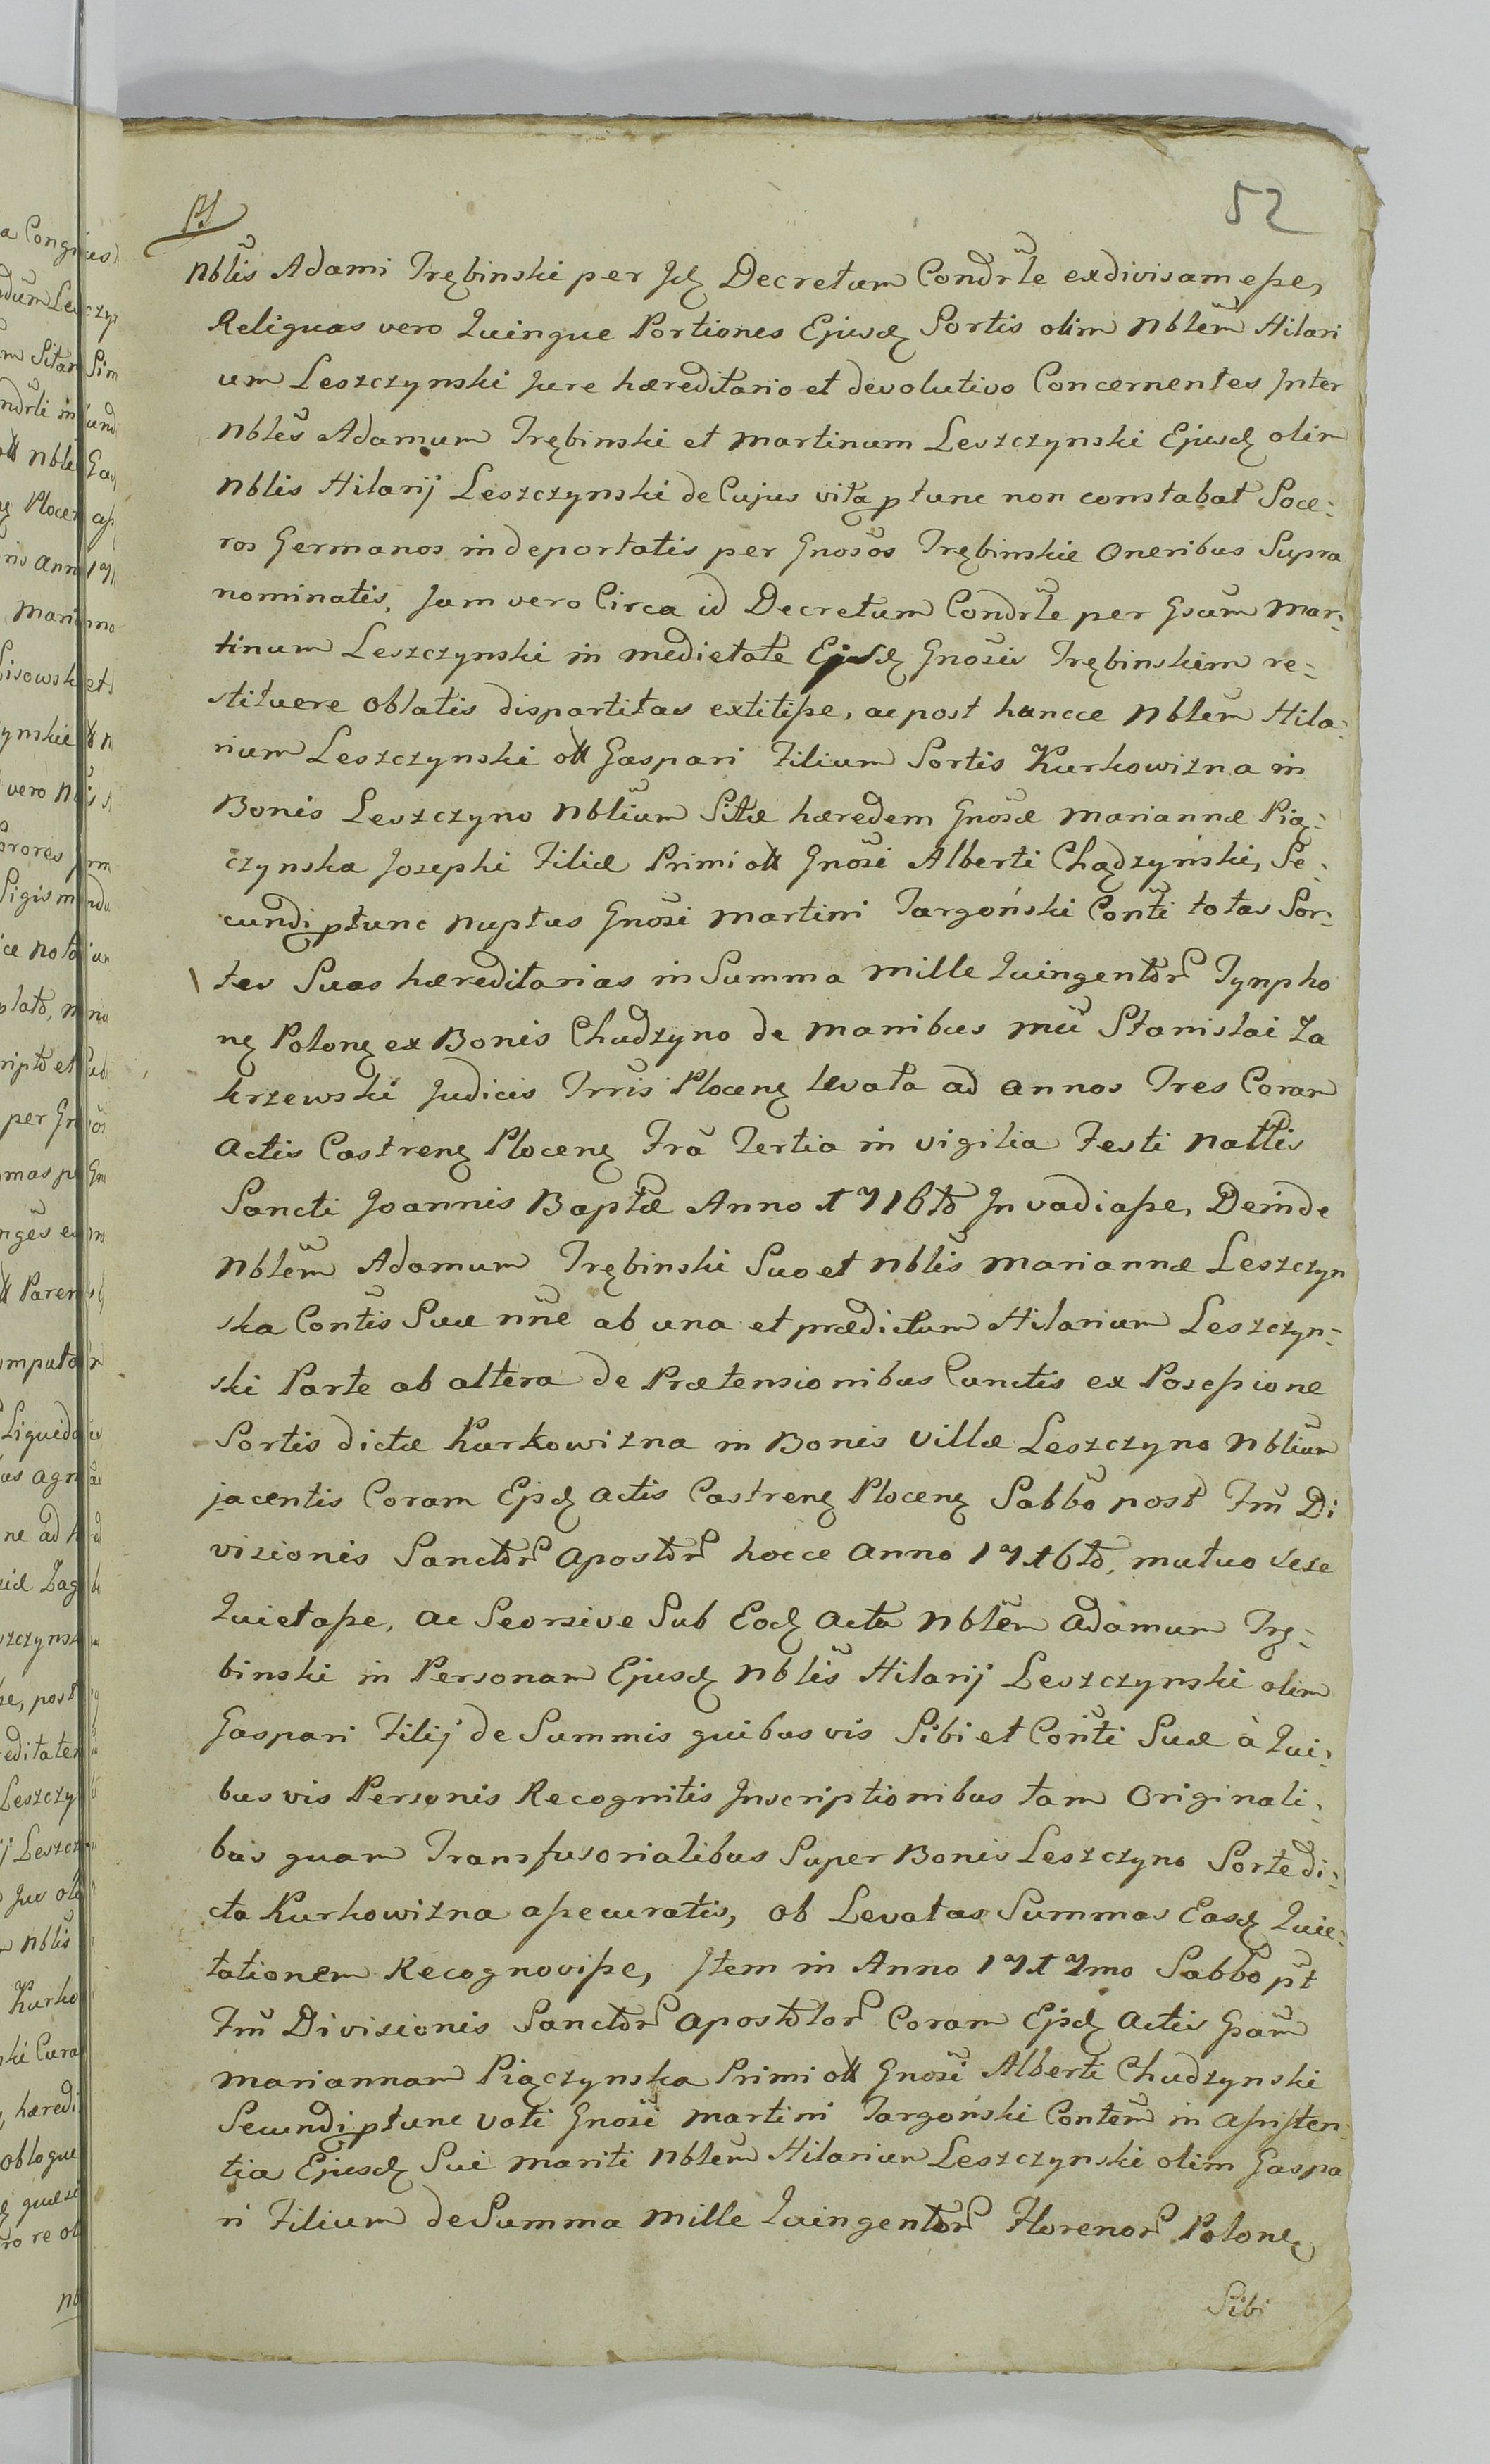 52
nblis Adami Trębinski per Id Decretum Condrle exdivisam esse,
Reliquas vero Quinque Portiones Ejusd Sortis olim nblem Hilari
um Leszczynski Jure hæreditario et devolutivo Concernentes Inter
nbles Adamum Trębinski et Martinum Leszczynski Ejusd olim
nblis Hilarij Leszczynski de Cujus vita ptunc non constabat Soce:
ros Germanos in deportatis per Gnosos Trębinskie Oneribus Supra
nominatis, Jam vero Circa id Decretum Condrle per Gsum Mar:
tinum Leszczynski in medietate Ejusd Gnosis Trębinskim re:
stituere oblatis dispartitas extitisse, ac post huncce nblem Hila:
rium Leszczynski olt Gaspari Filium Sortis Kurkowizna in
Bonis Leszczyno nblium Sitæ hæredem Gnosæ Mariannæ Pią:
czynska Josephi Filiæ Primi olt Gnosi Alberti Chądzyński, Se:
cundi ptunc nuptus Gnosi Martini Targoński Conti totas Sor:
tes Suas hæreditarias in Summa Mille Quingentor Tynpho
nz Polonz ex Bonis Chudzyno de manibus Mci Stanislai Za
krzewski Judicis Trris Plocenz levata ad annos Tres Coram
Actis Castrenz Plocenz Fra Tertia in vigilia Festi Nattis
Sancti Joannis Baptæ Anno 1716to Invadiasse, Deinde
Nblem Adamum Trębinski Suo et Nblis Mariannæ Leszczyn
ska Contis Suæ nne ab una et prædictum Hilarium Leszczyn:
ski Parte ab altera de Prætensionibus Cunctis ex Posessione
Sortis dictæ Kurkowizna in Bonis Villæ Leszczyno Nblium
jacentis Coram Eisd Actis Castrenz Plocenz Sabbo post Fm Di
visionis Sanctor Apostor hocce Anno 1716to, mutuo sese
Quietasse, ac Seorsive Sub Eod Actu Nblem Adamum Trę:
binski in Personam Ejusd Nblis Hilarij Leszczynski olim
Gaspari Filij de Summis quibusvis Sibi et Conti Suæ à Qui:
busvis Personis Recognitis Inscriptionibus tam Originali:
bus quam Transfusorialibus Super Bonis Leszczyno Sorte di:
cta Kurkowizna assecuratis, ob Levatas Summas Easd Quie:
tationem Recognovisse, Item in Anno 1717mo Sabbo pt
Fm Divisionis Sanctor Apostolor Coram Eisd Actis Gsam
Mariannam Piączynska Primi olt Gnosi Alberti Chudzynski
Secundi ptunc voti Gnosi Martini Targoński Contem in assisten:
tia Ejusd Sui mariti Nblem Hilarium Leszczynski olim Gaspa
ri Filium de Summa Mille Quingentor Florenor Polonz
Sibi